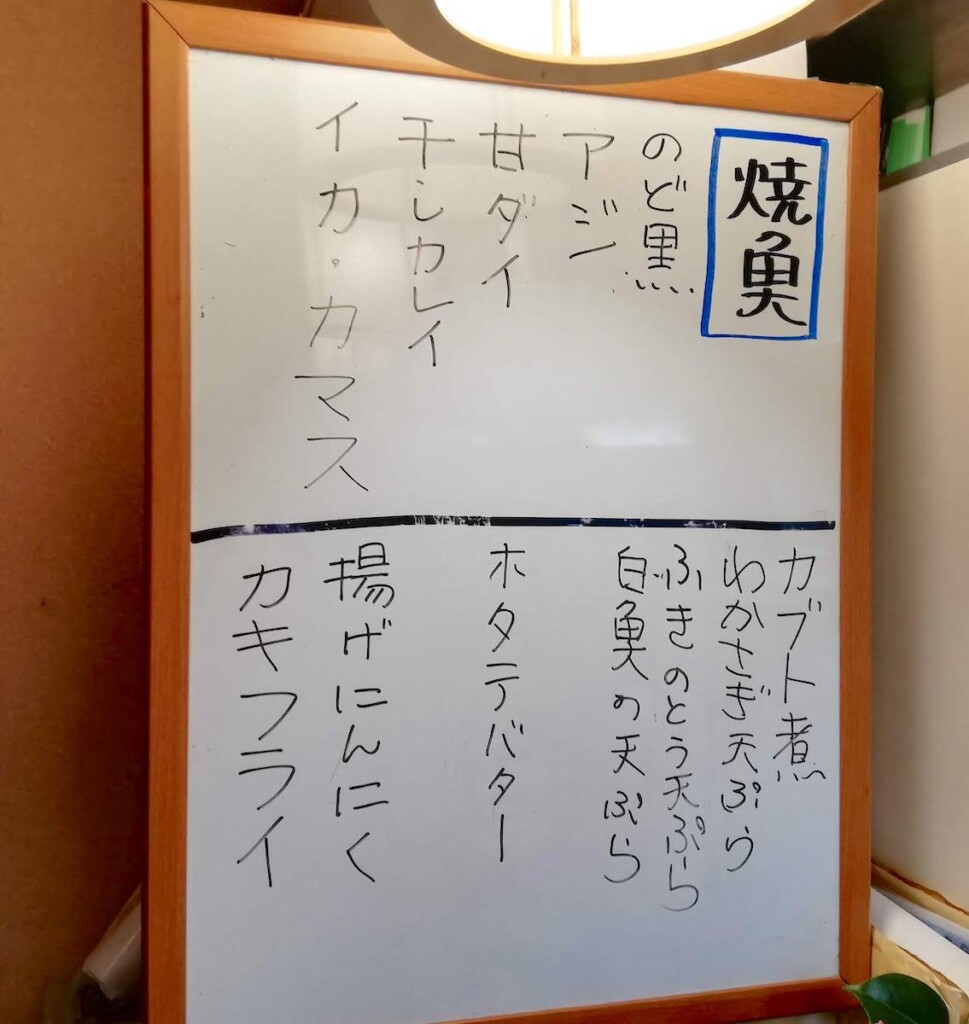 焼魚
のど黒
アジ
甘ダイ
干しカレイ
イカ・カマス
カブト煮
わかさぎ天ぷら
ふきのとう天ぷら
白魚の天ぷら
ホタテバター
揚げにんにく
カキフライ